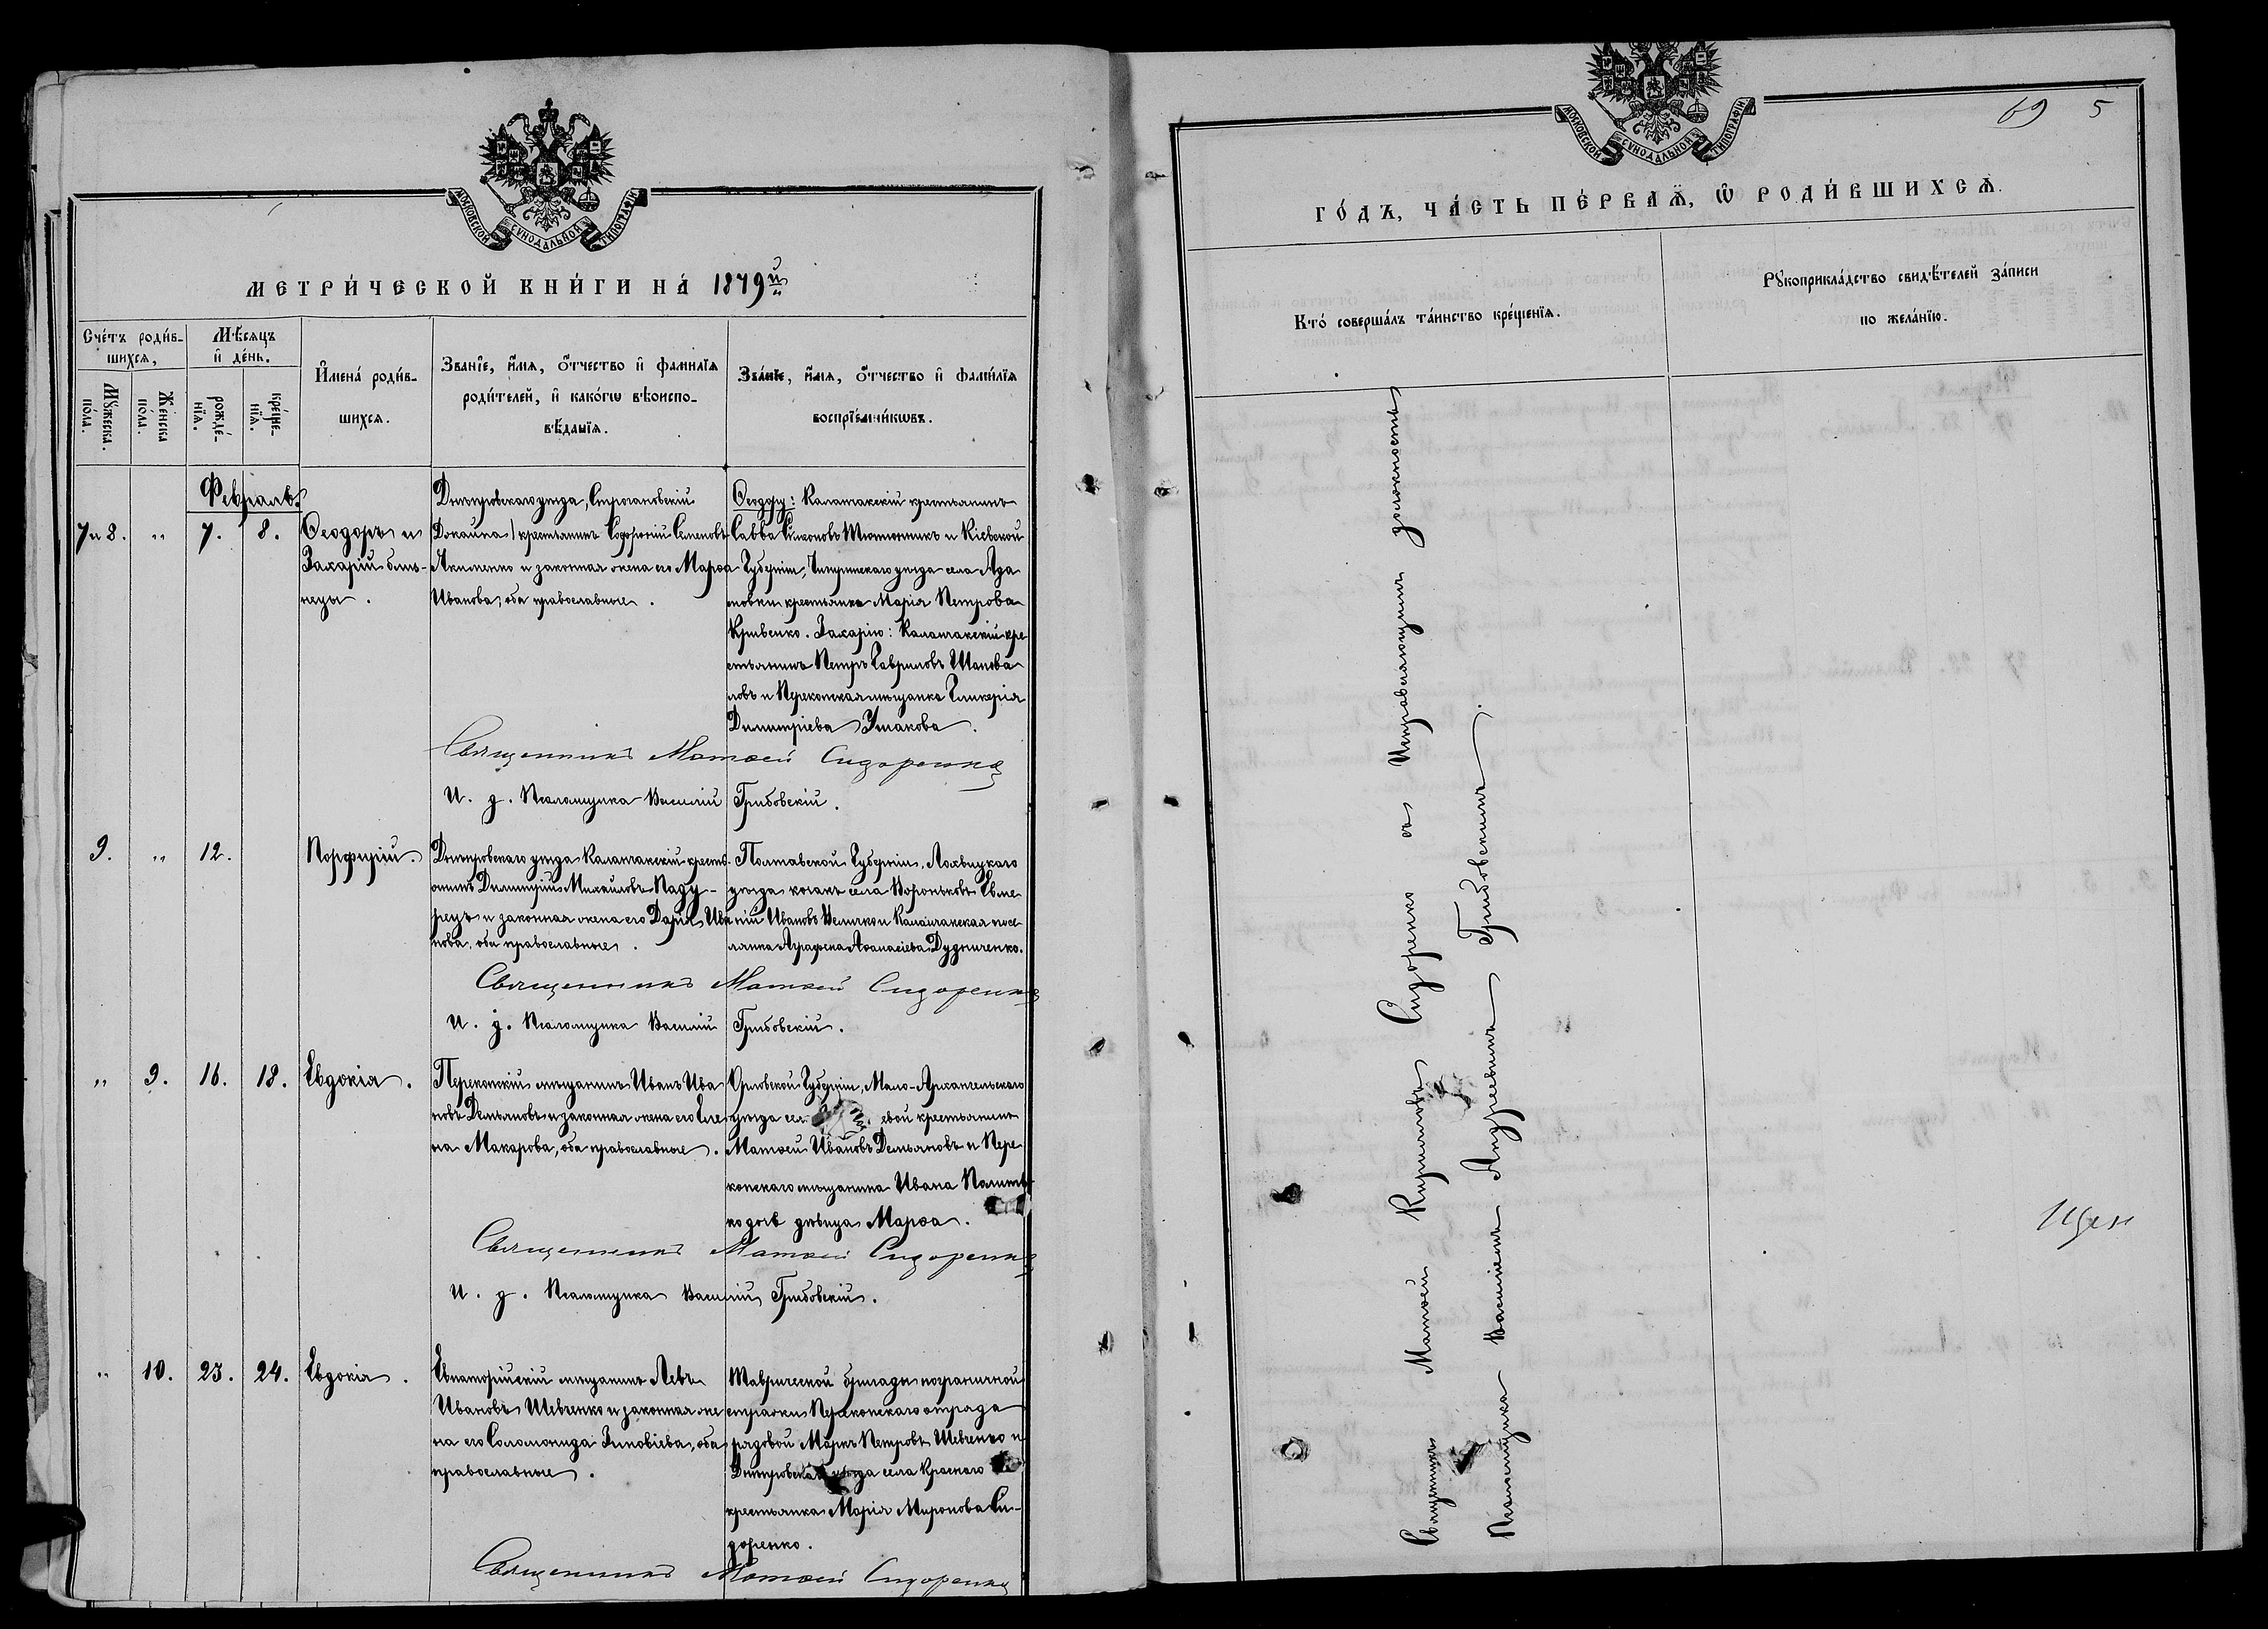 МОСКОВСКОЙ СѴНОДАЛЬНОЙ ТИПОГРАФІИ
МЕТРИ́ЧЕСКОЙ КНИ́ГИ НА́ 1879й
Сче́тъ роди́в-
шихся,
Му́жеска по́ла.
Же́нска по́ла.
Мѣ́сяцъ
и҆ де́нь.
рожде́-
нїя.
креще́-
нїя.
И҆мена́ роди́в-
шихся.
Зва́нїе, и҆́мя, о҆́тчество и҆ фами́лїя
роди́телей, и҆ како́гѡ вѣ́роиспо-
вѣ́данїя.
Зва́нїе, и҆́мя, о҆́тчество и҆ фами́лїя
воспрїе́мникѡвъ.
Февраль
7 и 8.
"
7.
8.
Ѳеодоръ и
Захарій близ-
нецы.
Днепровскаго уезда, Строгановскій
крестьянинъ Софроній Семеновъ
Акименко и законная жена его Марѳа
Иванова, оба православные.
Ѳеодору: Каланчакскій крестьянинъ
Савва Симоновъ Тютюнникъ и Кіевской
Губерніи, Чигиринскаго уезда села Ада
мовки крестьянка Марія Петрова
Кривенко. Захарію: Каланчакскій кре
стьянинъ Петръ Гавриловъ Шапова
ловъ и Перекопская мещанка Гликерія
Димитріева Ушакова.
Священникъ Матѳей Сидоренко
И. д. Псаломщика Василій Грибовскій.
9.
"
12.
Порфирій.
Днепровскаго уезда Каланчакскій кресть-
янинъ Димитрій Михаиловъ Паду-
рецъ и законная жена его Дарія Ива
нова, оба православные.
Полтавской Губерніи, Лохвицкаго
уезда козакъ села Вороньковъ Евме
ній Ивановъ Величко и Каланчакская посе
лянка Агафія Аѳанасіева Дудниченко.
Священникъ Матѳей Сидоренко
И. д. Псаломщика Василій Грибовскій.
"
9.
16.
18.
Евдокія.
Перекопскій мещанинъ Иванъ Ива
новъ Демьяновъ и законная жена его Еле
на Макарова, оба православные.
Орловской Губерніи, Мало-Архангельскаго
уезда евой крестьянинъ
Матѳей Ивановъ Демьяновъ и Пере
копскаго мещанина Ивана
дочь девица Марѳа.
Священникъ Матѳей Сидоренко
И. д. Псаломщика Василій Грибовскій.
"
10.
23.
24.
Евдокія.
Евпаторійскій мещанинъ Левъ
Ивановъ Шевченко и законная же
на его Соломонида Зиновіева, оба
православные.
Таврической бригады пограничной
стражи Перекопскаго отряда
рядовой Маркъ Петровъ Шевченко и
Днепровскаго уезда села Краснаго
крестьянка Марія Миронова Си-
доренко.
Священникъ Матѳей Сидоренко
МОСКОВСКОЙ СѴНОДАЛЬНОЙ ТИПОГРАФІИ
69 5
ГО́ДЪ, ЧА́СТЬ ПЕ́РВАЯ, Ѡ҆ РОДИ́ВШИХСЯ.
Кто́ соверша́лъ та́инство креще́нїя.
Рꙋкоприкла́дство свидѣ́телей за́писи
по жела́нїю.
Священникъ Матѳей Кирилловъ Сидоренко съ Исправляющимъ должность
Псаломщика Василіемъ Андреевымъ Грибовскимъ.